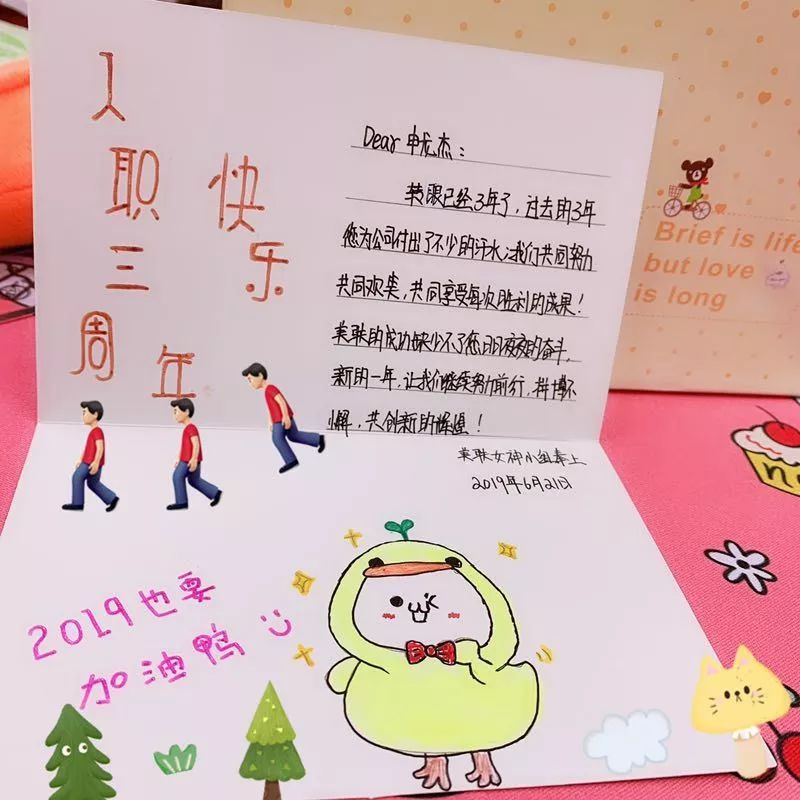 入
职 快
三 乐
周 年
Dear 申龙杰：
转眼已经3年了，过去的3年
您为公司付出了不少的汗水，我们共同努力
共同欢笑，共同享受每次胜利的成果！
美联的成功缺少不了您日日夜夜的奋斗，
新的一年，让我们继续努力前行，拼搏不
懈，共创新的辉煌！
美联女神小组奉上
2019年6月21日
2019也要
加油鸭
Brief is life
but love
is long